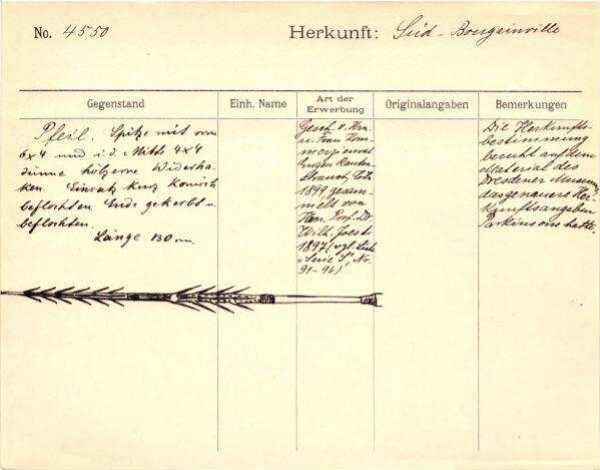 No. 4550
Herkunft: Süd-Bougainville
Gegenstand
Einh. Name
Art der Erwerbung
Originalangaben
Bemerkungen
Pfeil. Spitze mit vorn
6x4 und i. d. Mitte 4x4
dünne hölzerne Widerha-
ken. Einsatz kurz konisch
beflochten. Ende gekerbt u.
beflochten.
Länge 130 cm.
Gesch. v. Hrn
u. Frau Kom-
merzienrat
Eugen Rauten-
strauch, Cöln
1899 gesam-
melt von
Hrn. Prof. Dr
Wilh. Joest
1897 (vgl. Liste
"Serie S", Nr.
91-94)
Die Herkunfts-
bestimmung
beruht auf dem
Material des
Dresdener Museums,
das genauere Her-
kunftsangaben
Parkinsons hatte.